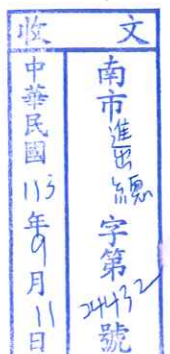 收文
南市進出總字第24432號
中華民國113年9月11日